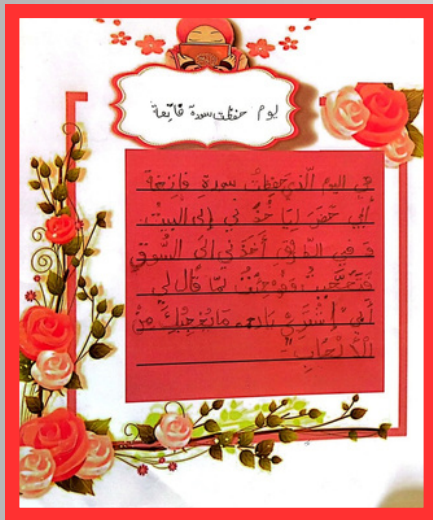 يوم حفظت سورة فاتحة
في اليوم الّذي حفظت سورة فاتحة
أبي حضر ليأخذني إلى البيت
و في الطريق أخذني الى السّوق
لمّا قال لي
أبي إشتري ما يعجبك من
الألعاب